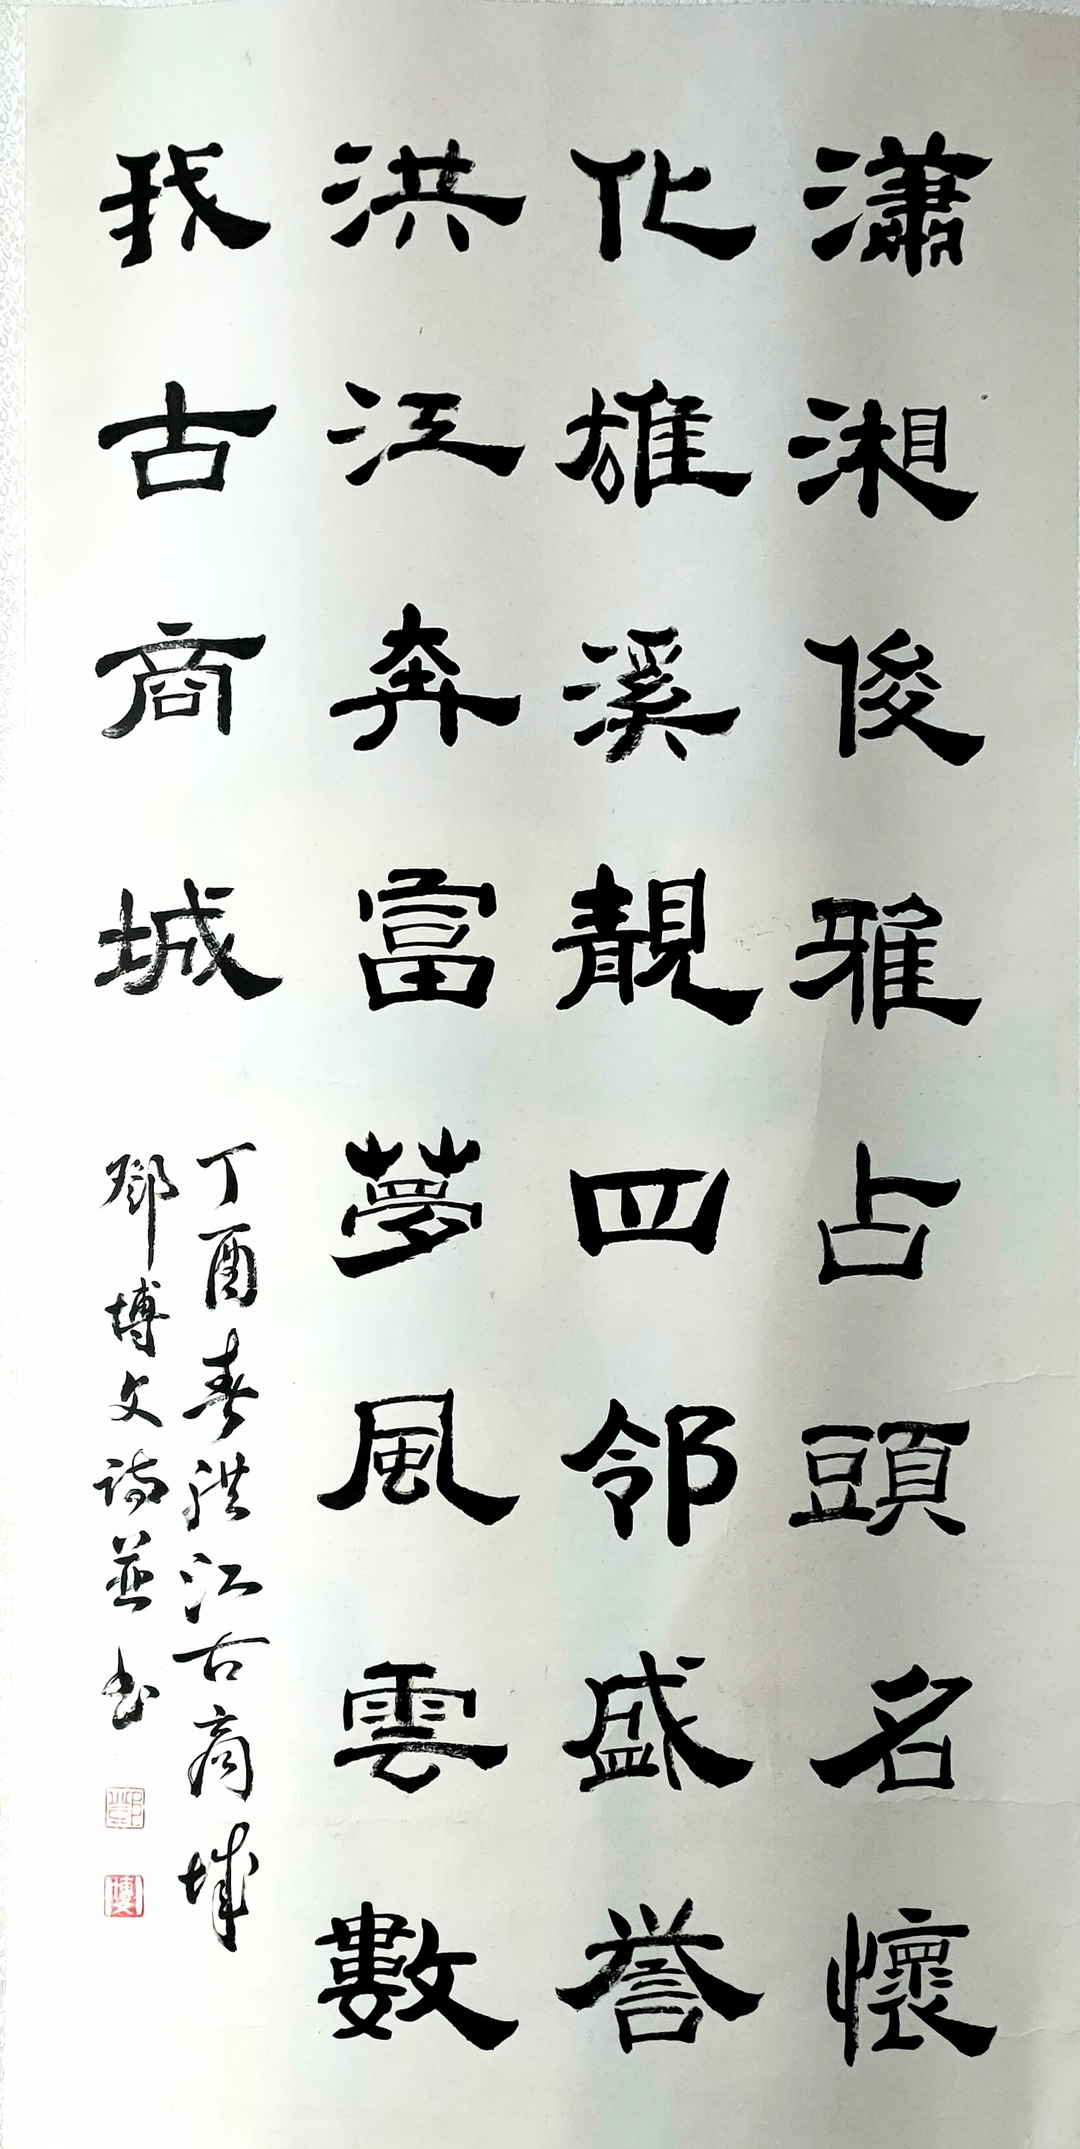 瀟湘俊雅占頭名懷
化雄溪靚四邻盛誉
洪江奔富夢風雲數
我古商城
丁酉春洪江古商城
鄧博文诗並书